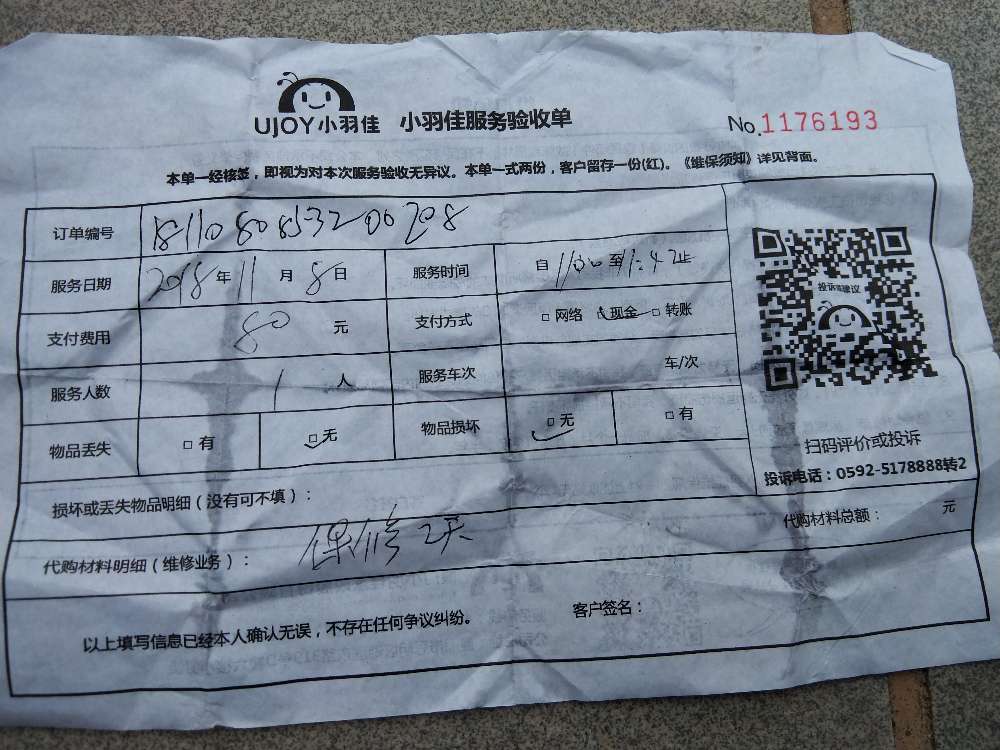 UJOY小羽佳 小羽佳服务验收单 No.1176193
本单一经核签，即视为对本次服务验收无异议。本单一式两份，客户留存一份(红)。《维保须知》详见背面。
订单编号
服务日期 2018年11月8日 服务时间 自11:00至11:42止
支付费用 80元 支付方式 □网络 □现金 □转账
服务人数 1人 服务车次 车/次
物品丢失 □有 □无 物品损坏 □无 □有
投诉或建议
扫码评价或投诉
投诉电话：0592-5178888转2
损坏或丢失物品明细（没有可不填）：
代购材料明细（维修业务）： 保修2天 代购材料总额： 元
以上填写信息已经本人确认无误，不存在任何争议纠纷。 客户签名：